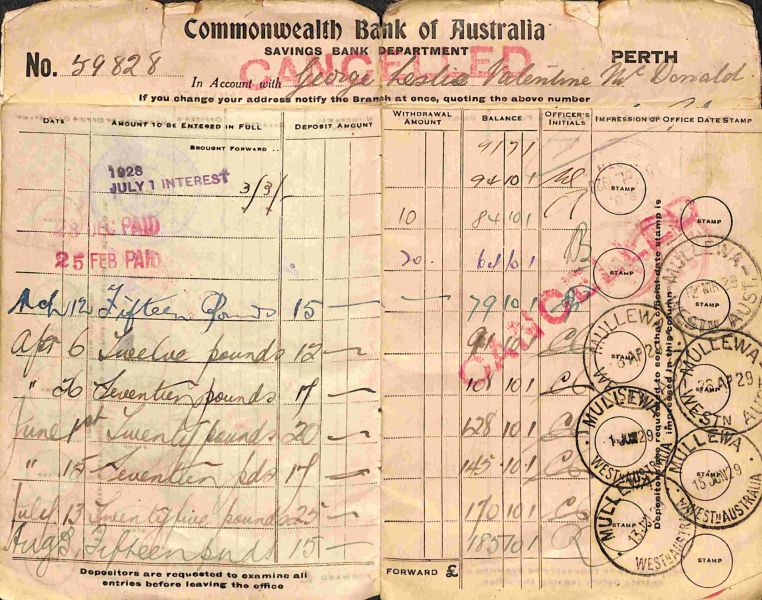 Commonwealth Bank of Australia
SAVINGS BANK DEPARTMENT
PERTH
CANCELLED
No. 59828
In Account with George Leslie Valentine McDonald
If you change your address notify the Branch at once, quoting the above number
DATE AMOUNT TO BE ENTERED IN FULL DEPOSIT AMOUNT WITHDRAWAL AMOUNT BALANCE OFFICER'S INITIALS IMPRESSION OF OFFICE DATE STAMP
BROUGHT FORWARD .. 91 7 1
1928
JULY 1 INTEREST 3/3/- 94 10 1
DEC PAID 10 84 10 1
25 FEB PAID 20 - 64 10 1
Mch 12 Fifteen Pounds 15 — — 79 10 1
Apr 6 Twelve pounds 12 — 91 10 1
" 26 Seventeen pounds 17 — 108 10 1
June 1st Twenty pounds 20 — 128 10 1
" 15 Seventeen pds 17 — 145 10 1
July 13 Twenty five pounds 25 — 170 10 1
Aug 3 Fifteen pnds 15 — 185 10 1
CANCELLED
STAMP
STAMP
STAMP
STAMP
STAMP
STAMP
STAMP
STAMP
MULLEWA
WESTN AUST
MULLEWA
6 AP 29
MULLEWA
26 AP 29
WESTN AUST
MULLEWA
1 JUN 29
WESTN AUSTRALIA
MULLEWA
15 JUN 29
WESTN AUSTRALIA
MULLEWA
WESTN AUSTRALIA
Depositors are requested to see that official date stamp is
impressed in this column
Depositors are requested to examine all
entries before leaving the office
FORWARD £